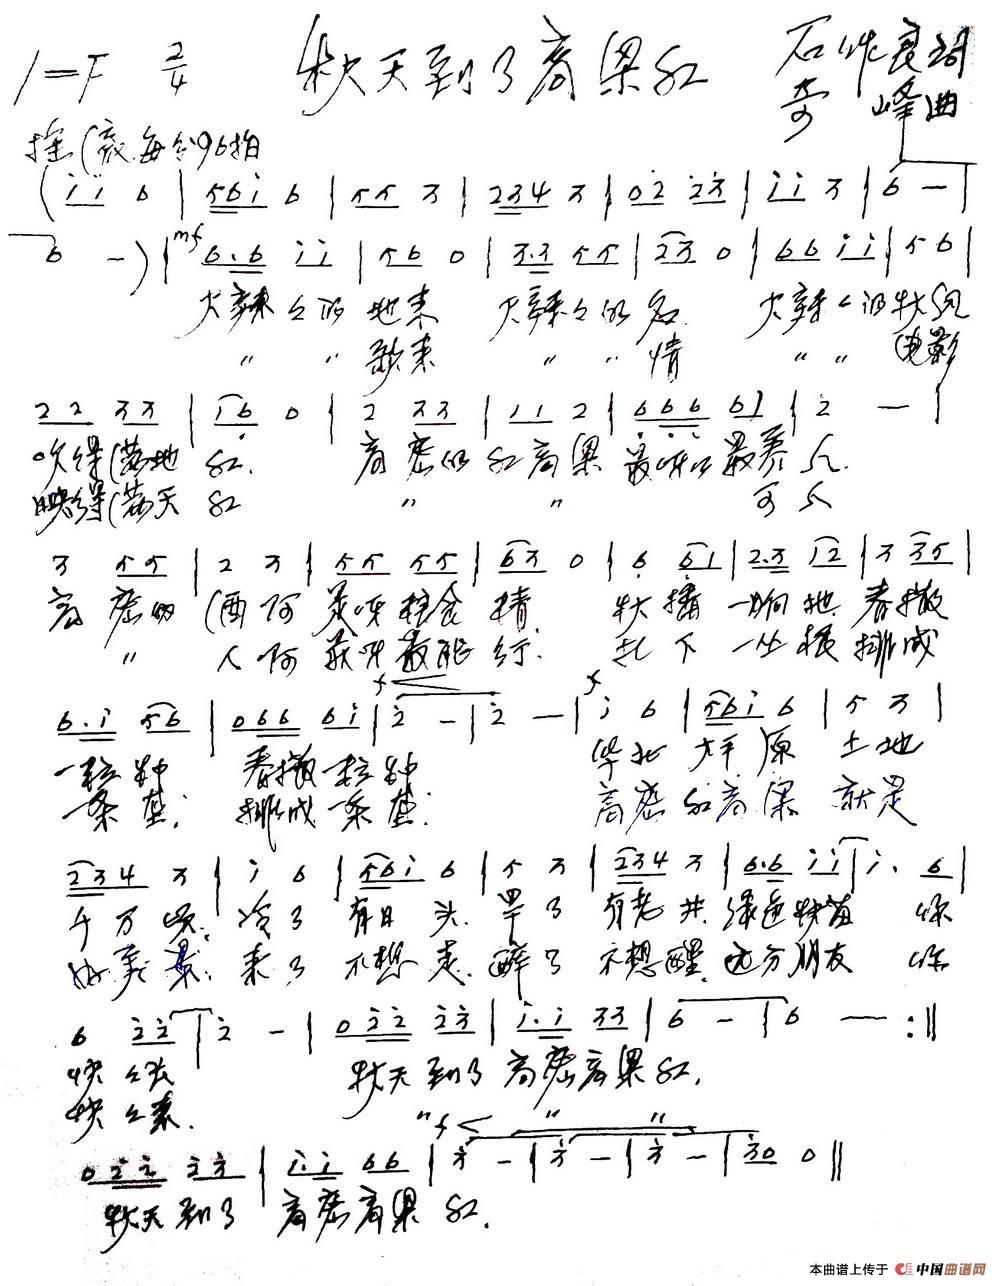 1=F 2/4 秋天到了高粱红 石作良词
峰曲
每分96拍
(i i 6 | 5 6 i 6 | 5 5 3 | 2 3 4 3 | 0 2 2 3 | i i 3 | 6 — |
6 —) | mf 6. 6 i i | 5 6 0 | 3. 3 5 5 | 2 3 0 | 6 6 i i | 5 6 |
火辣々的 地来 火辣々的名 火辣々的秋风
〃 〃 歌来 〃 〃 情 〃 〃 电影
2 2 3 3 | 1 6 0 | 2 3 3 | 1 1 2 | 6 6 6 6 1 | 2 — |
吹得(满地 红. 高密的红高粱 最呀么最养人.
映得(满天 红 〃 〃 可人
3 5 5 | 2 3 | 5 5 5 5 | 6 3 0 | 6 6 1 | 2. 3 1 2 | 3 3 5 |
高密的 (酒 阿 秋播 一垧地 春撒
〃 人 阿 扎下 排成
6. i 5 6 | 0 6 6 6 i | 2 — | 2 — | f i 6 | 5 6 i 6 | 5 3 |
一粒种 春撒一粒种 华北大平原 土地
一条垄; 排成一条垄; 高密红高粱 就是
2 3 4 3 | i 6 | 5 6 i 6 | 5 3 | 2 3 4 3 | 6. 6 i i | i. 6 |
千万顷; 冷了 有日头. 旱了 有老井. 绿色秧苗 你
美景; 来了 不想走. 醉了 不想醒. 远方朋友 你
6 2 2 | 2 — | 0 2 2 2 3 | i. i 3 3 | 6 — | 6 — :||
快々长 秋天到了 高密高粱红.
快々来.
0 2 2 2 3 | i. i 6 6 | 3 — | 3 — | 3 — | 3 0 0 ||
秋天到了 高密高粱 红.
本曲谱上传于 中国曲谱网